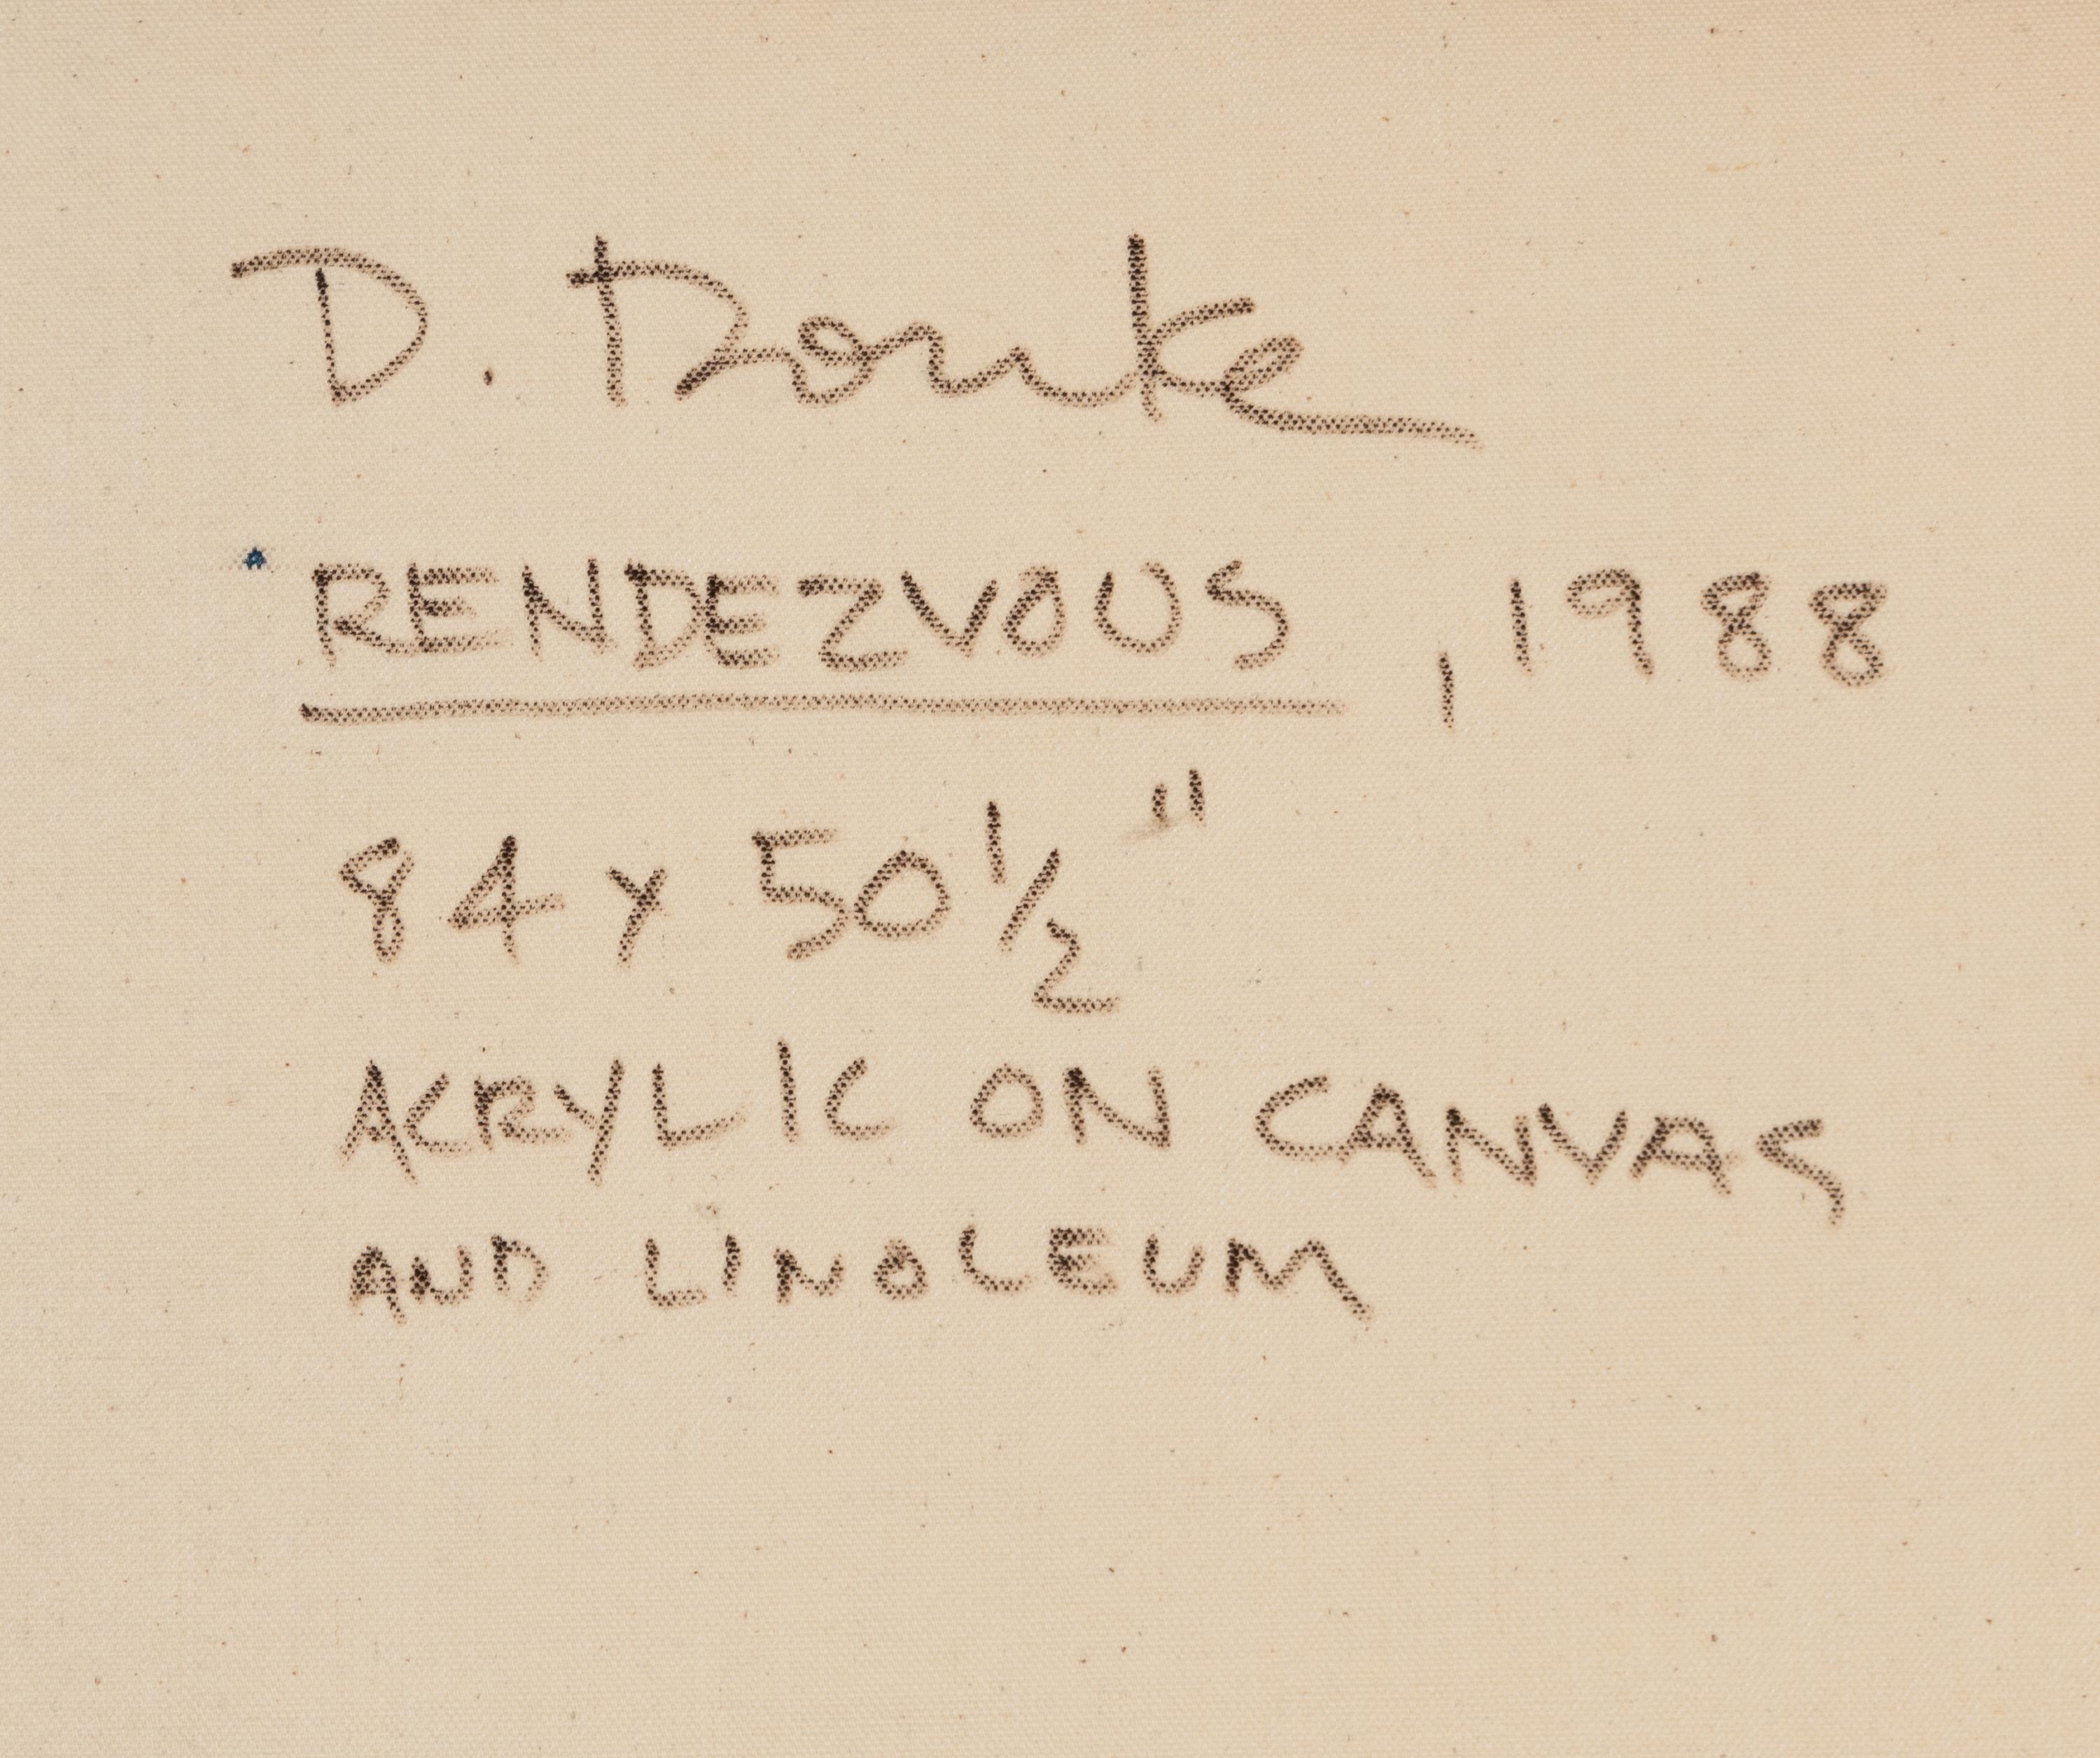 D.
RENDEZVOUS, 1988
84 x 50 1/2"
ACRYLIC ON CANVAS
AND LINOLEUM